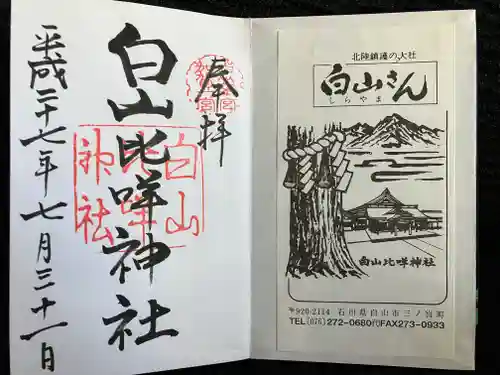 奉拝
白山比咩神社
平成二十七年七月三十一日
白山
比咩
神社
北陸鎮護の大社
白山さん
しらやま
白山比咩神社
〒920-2114 石川県白山市三ノ宮町
TEL(076)272-0680代FAX273-0933